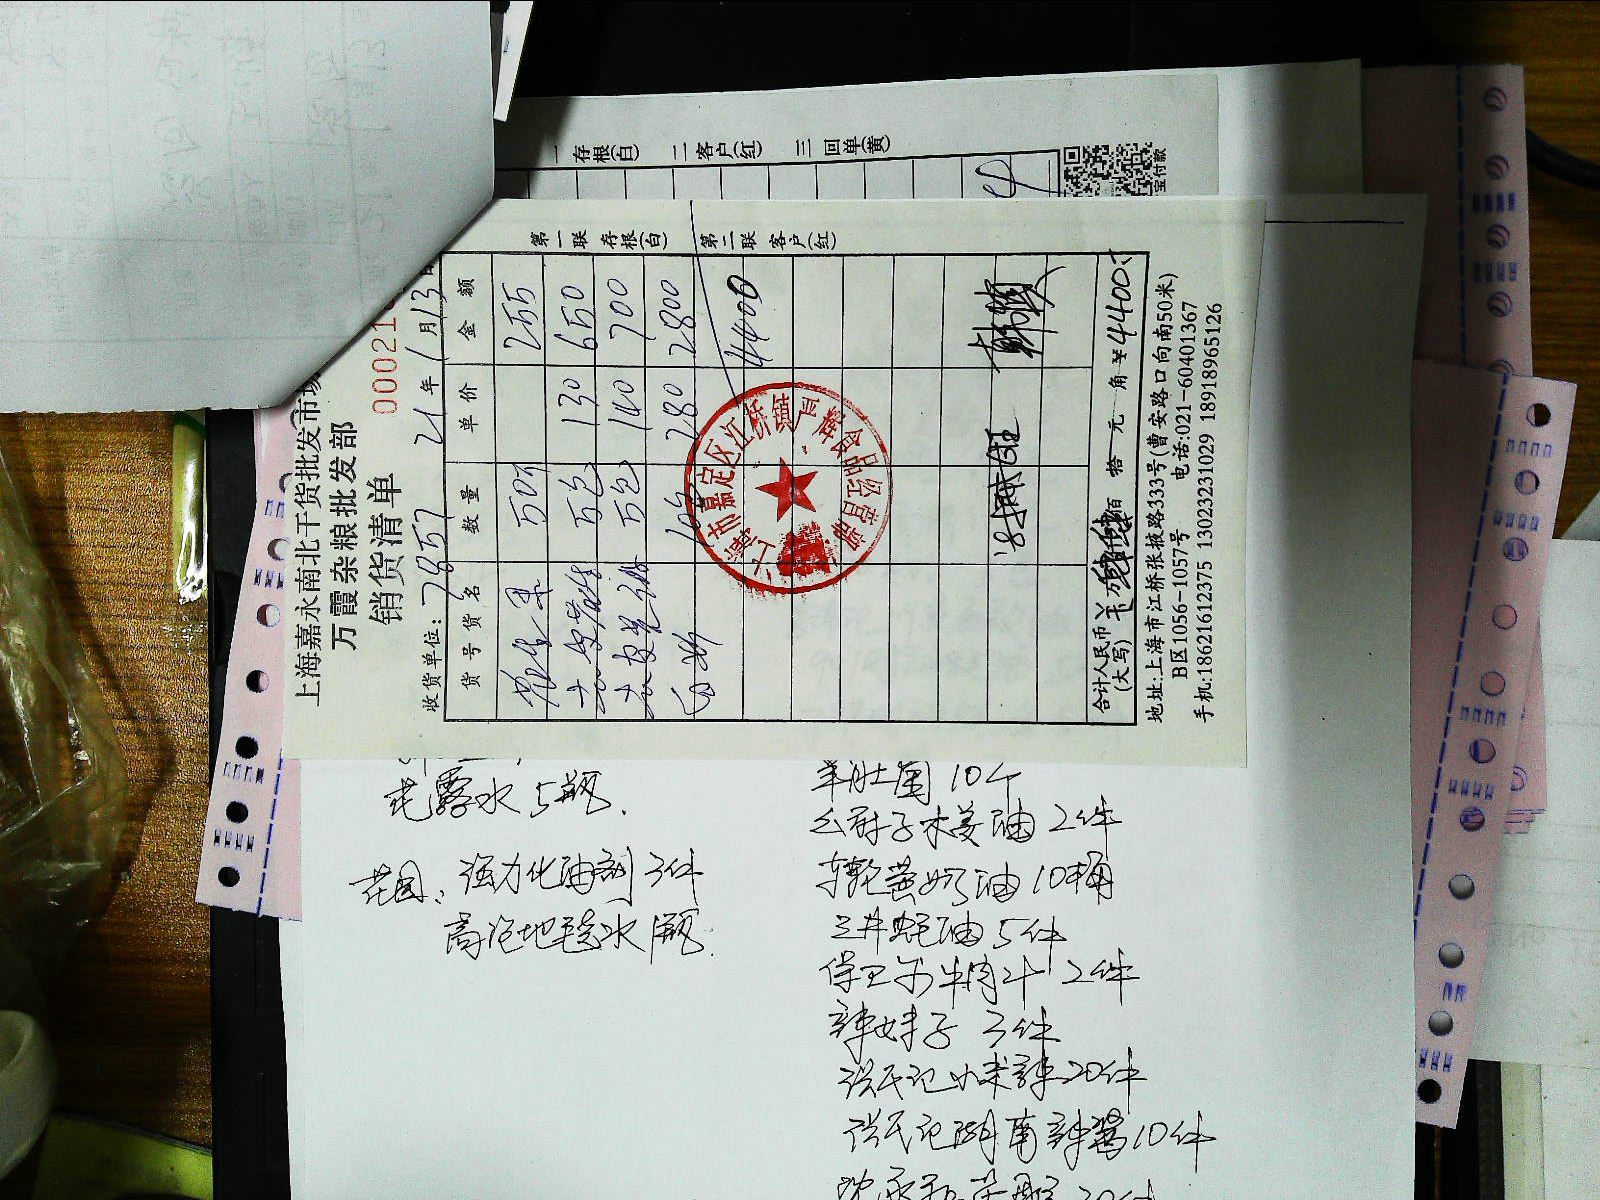 一 存根(白) 二 客户(红) 三 回单(黄)
宝付款
上海嘉永南北干货批发市场
万霞杂粮批发部
销货清单
00021
收货单位: 7857 21年 1月13日
货号 货名 数量 单价 金额
50斤 255
去皮 5包 130 650
去皮 5包 140 700
10包 280 2800
4400
合计人民币(大写) 佰 拾 元 角 ¥4400
地址:上海市江桥张掖路333号(曹安路口向南50米)
B区1056-1057号 电话:021-60401367
手机:18621612375 13023231029 18918965126
第一联 存根(白) 第二联 客户(红)
上海市嘉定区江桥镇严辉食品经营部
花露水 5瓶.
花园: 强力化油剂 3件
高泡地毯水 1瓶.
羊肚菌 10个
幺厨子木姜油 2件
车轮黄奶油 10桶
三井蚝油 5件
保卫尔牛肉汁 2件
辣妹子 3件
洪氏记小米辣 20件
洪氏记湖南辣酱 10件
20件